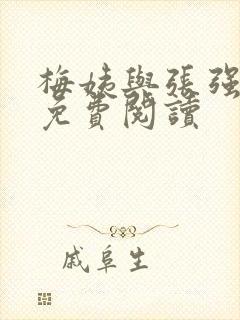 梅姨與張强
免費閱讀
戚阜生